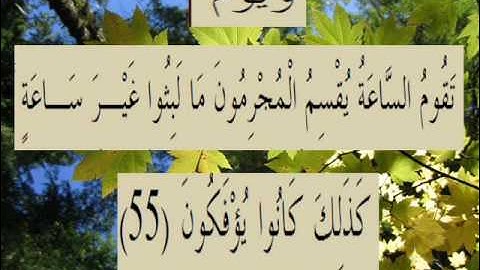 ويوم
تَقُومُ السَّاعَةُ يُقْسِمُ الْمُجْرِمُونَ مَا لَبِثُوا غَيْرَ سَاعَةٍ
كَذَلِكَ كَانُوا يُؤْفَكُونَ (55)